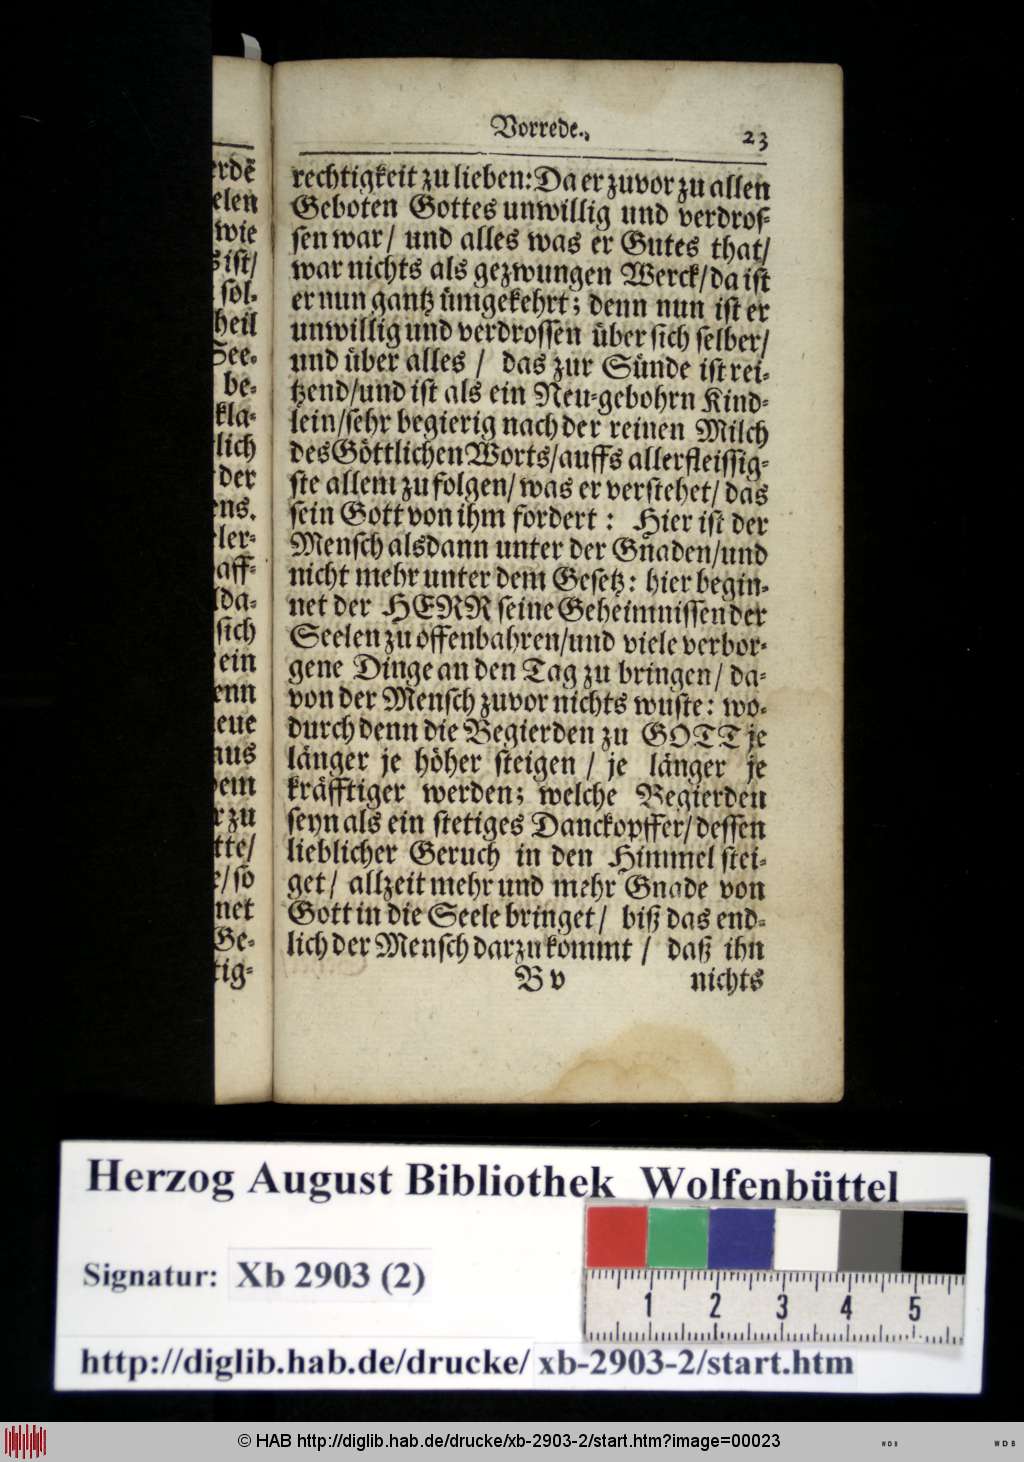 Vorrede.
23
rechtigkeit zu lieben: Da er zuvor zu allen
Geboten Gottes unwillig und verdros-
sen war/ und alles was er Gutes that/
war nichts als gezwungen Werck/ da ist
er nun gantz ümgekehrt; denn nun ist er
unwillig und verdrossen über sich selber/
und über alles / das zur Sünde ist rei-
tzend/ und ist als ein Neu-gebohrn Kind-
lein/ sehr begierig nach der reinen Milch
des Göttlichen Worts/ auffs allerfleissig-
ste allem zu folgen/ was er verstehet/ das
sein Gott von ihm fordert: Hier ist der
Mensch alsdann unter der Gnaden/ und
nicht mehr unter dem Gesetz: hier begin-
net der HERR seine Geheimnissen der
Seelen zu offenbahren/ und viele verbor-
gene Dinge an den Tag zu bringen/ da-
von der Mensch zuvor nichts wuste: wo-
durch denn die Begierden zu GOTT je
länger je höher steigen / je länger je
kräfftiger werden; welche Begierden
seyn als ein stetiges Danckopffer/ dessen
lieblicher Geruch in den Himmel stei-
get/ allzeit mehr und mehr Gnade von
Gott in die Seele bringet/ biß das end-
lich der Mensch darzu kommt / daß ihn
B v nichts
Herzog August Bibliothek Wolfenbüttel
Signatur: Xb 2903 (2)
1 2 3 4 5
http://diglib.hab.de/drucke/ xb-2903-2/start.htm
© HAB http://diglib.hab.de/drucke/xb-2903-2/start.htm?image=00023
WDB
WDB